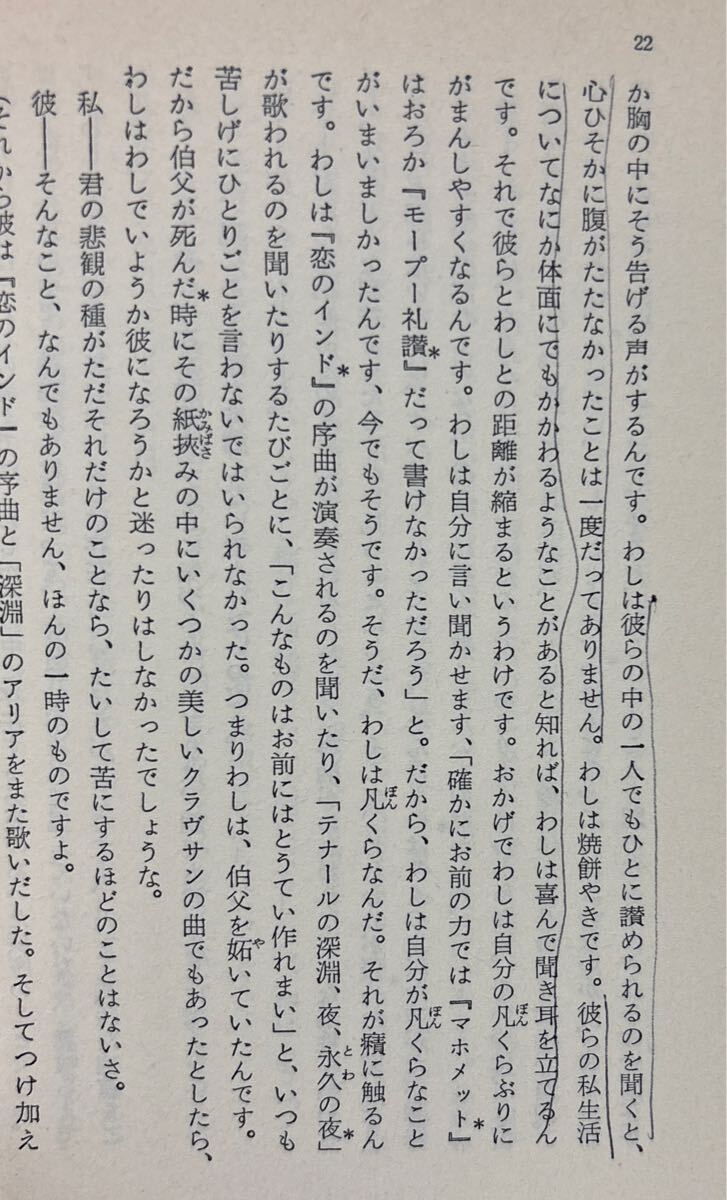 22
か胸の中にそう告げる声がするんです。わしは彼らの中の一人でもひとに讃められるのを聞くと、
心ひそかに腹がたたなかったことは一度だってありません。わしは焼餅やきです。彼らの私生活
についてなにか体面にでもかかわるようなことがあると知れば、わしは喜んで聞き耳を立てるん
です。それで彼らとわしとの距離が縮まるというわけです。おかげでわしは自分の凡くらぶりに
がまんしやすくなるんです。わしは自分に言い聞かせます、「確かにお前の力では『マホメット*』
はおろか『モープー礼讃*』だって書けなかっただろう」と。だから、わしは自分が凡くらなこと
がいまいましかったんです、今でもそうです。そうだ、わしは凡くらなんだ。それが癪に触るん
です。わしは『恋のインド*』の序曲が演奏されるのを聞いたり、「テナールの深淵、夜、永久の夜*」
が歌われるのを聞いたりするたびごとに、「こんなものはお前にはとうてい作れまい」と、いつも
苦しげにひとりごとを言わないではいられなかった。つまりわしは、伯父を妬いていたんです。
だから伯父が死んだ*時にその紙挾みの中にいくつかの美しいクラヴサンの曲でもあったとしたら、
わしはわしでいようか彼になろうかと迷ったりはしなかったでしょうな。
私――君の悲観の種がただそれだけのことなら、たいして苦にするほどのことはないさ。
彼――そんなこと、なんでもありません、ほんの一時のものですよ。
（それから彼は『恋のインド』の序曲と「深淵」のアリアをまた歌いだした。そしてつけ加え